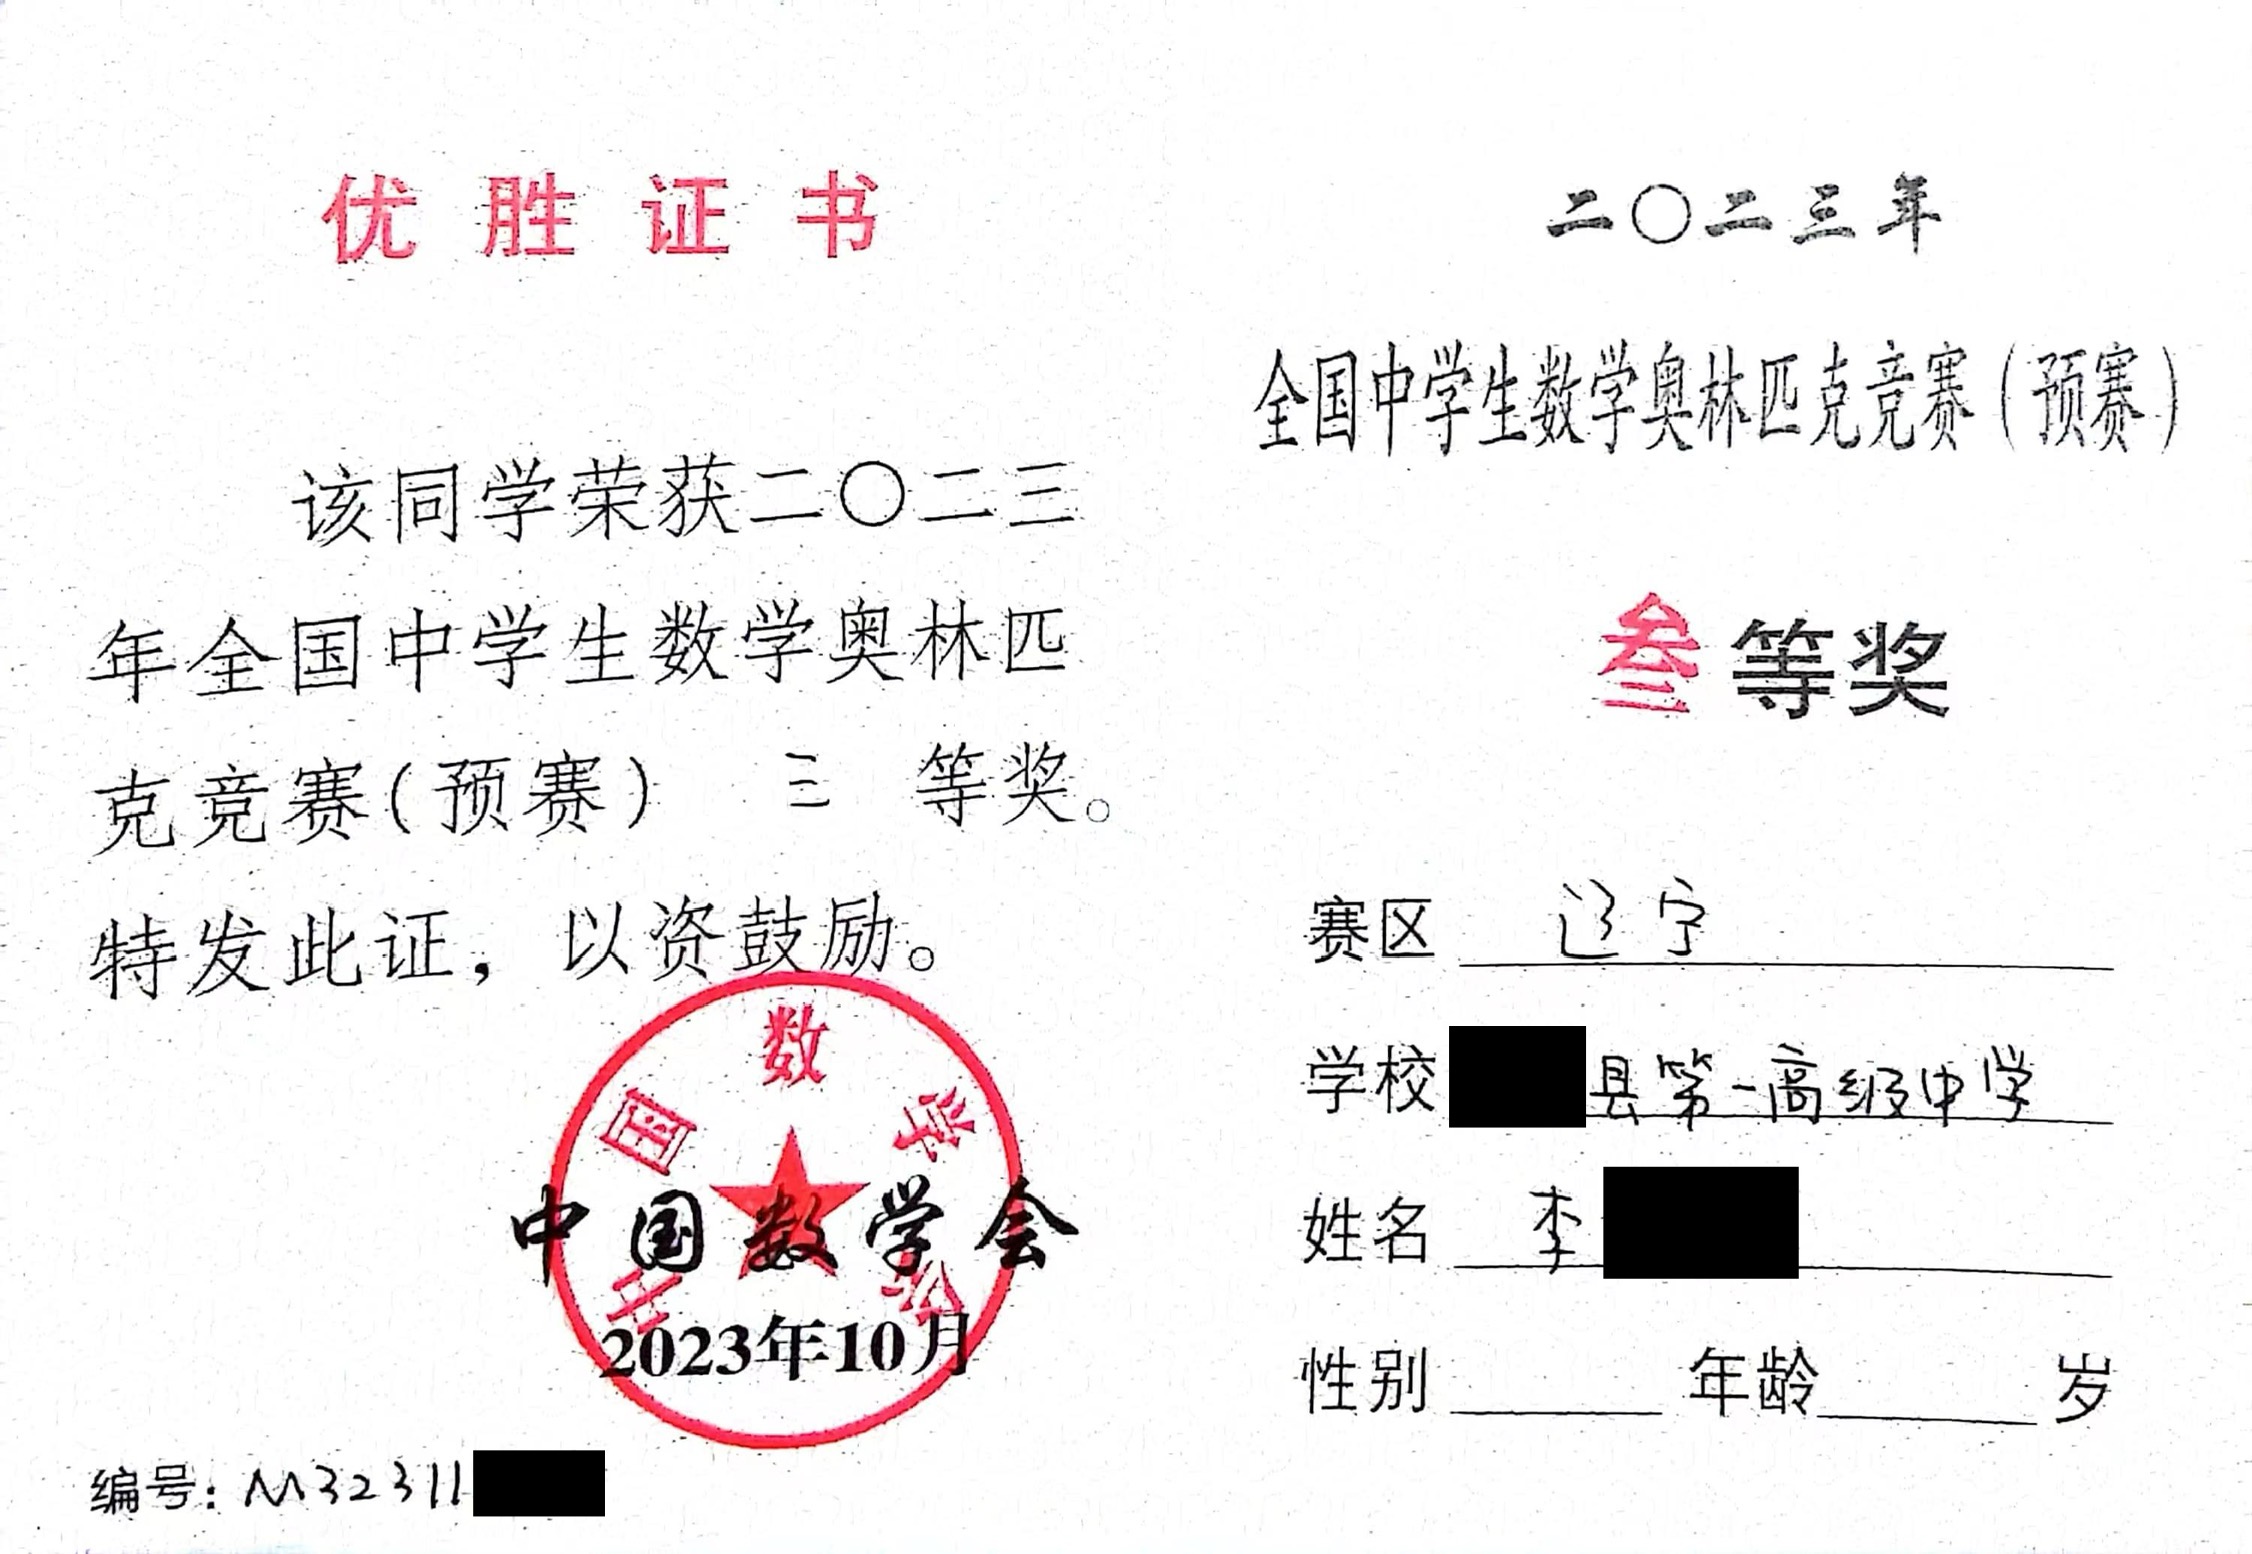 优胜证书
该同学荣获二〇二三
年全国中学生数学奥林匹
克竞赛(预赛) 三 等奖。
特发此证，以资鼓励。
中国数学会
中国数学会
2023年10月
编号：M32311
二〇二三年
全国中学生数学奥林匹克竞赛(预赛)
叁等奖
赛区 辽宁
学校 县第一高级中学
姓名 李
性别 年龄 岁